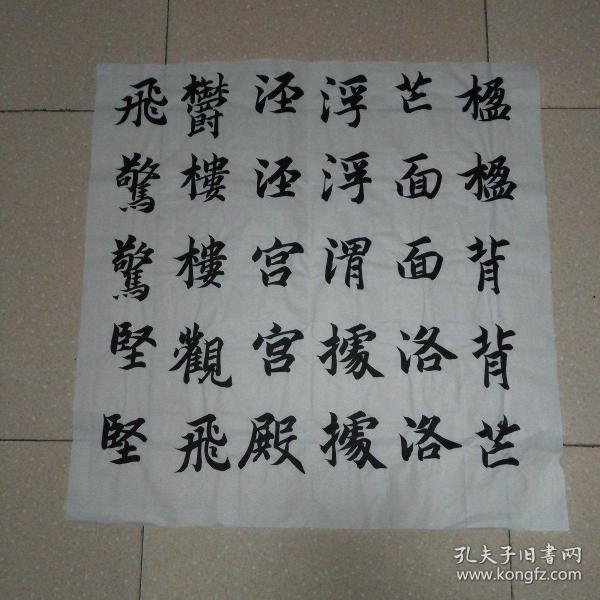 楹楹背背芒
芒面面洛洛
浮浮渭據據
泾泾宫宫殿
鬱樓樓觀飛
飛驚驚堅堅
孔夫子旧书网
www.kongfz.com